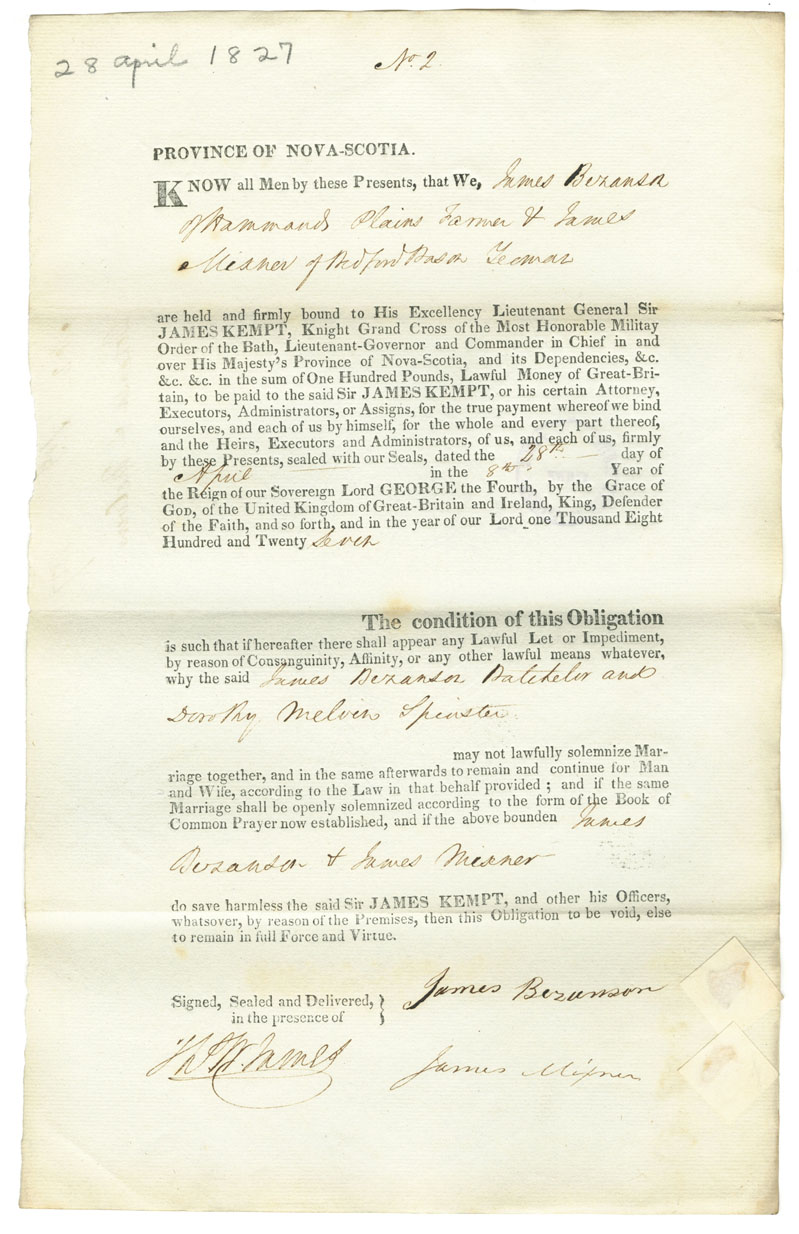 28 april 1827
No. 2.
PROVINCE OF NOVA-SCOTIA.
KNOW all Men by these Presents, that We, James Bezanson
of Hammonds Plains Farmer & James
Mixner of Bedford Bason Yeoman
are held and firmly bound to His Excellency Lieutenant General Sir
JAMES KEMPT, Knight Grand Cross of the Most Honorable Militay
Order of the Bath, Lieutenant-Governor and Commander in Chief in and
over His Majesty's Province of Nova-Scotia, and its Dependencies, &c.
&c. &c. in the sum of One Hundred Pounds, Lawful Money of Great-Bri-
tain, to be paid to the said Sir JAMES KEMPT, or his certain Attorney,
Executors, Administrators, or Assigns, for the true payment whereof we bind
ourselves, and each of us by himself, for the whole and every part thereof,
and the Heirs, Executors and Administrators, of us, and each of us, firmly
by these Presents, sealed with our Seals, dated the 28th day of
April in the 8th Year of
the Reign of our Sovereign Lord GEORGE the Fourth, by the Grace of
GOD, of the United Kingdom of Great-Britain and Ireland, King, Defender
of the Faith, and so forth, and in the year of our Lord one Thousand Eight
Hundred and Twenty Seven
The condition of this Obligation
is such that if hereafter there shall appear any Lawful Let or Impediment,
by reason of Consanguinity, Affinity, or any other lawful means whatever,
why the said James Bezanson Batchelor and
Dorothy Melvin Spinster
may not lawfully solemnize Mar-
riage together, and in the same afterwards to remain and continue for Man
and Wife, according to the Law in that behalf provided ; and if the same
Marriage shall be openly solemnized according to the form of the Book of
Common Prayer now established, and if the above bounden James
Bezanson & James Mixner
do save harmless the said Sir JAMES KEMPT, and other his Officers,
whatsover, by reason of the Premises, then this Obligation to be void, else
to remain in full Force and Virtue.
Signed, Sealed and Delivered, }
in the presence of
James Bezanson
James
James Mixner